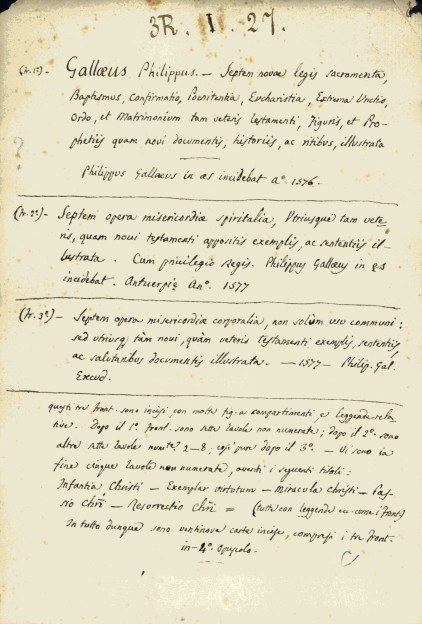 3R. I. 27.
(fr. 1º) - Gallæus Philippus. — Septem novæ legis sacramenta,
Baptismus, Confirmatio, Poenitentia, Eucharistia, Extrema Unctio,
Ordo, et Matrimonium tam veteris testamenti, Figuris, et Pro-
phetiis quam novi documentis, historiis, ac ritibus, illustrata
Philippus Gallæus in æs incidebat Aº. 1576.
(fr. 2º) - Septem opera misericordiæ spiritalia, Utriusque tam vete-
ris, quam novi testamenti appositis exemplis, ac sententiis il-
lustrata. Cum privilegio Regis. Philippus Gallæus in æs
incidebat. Antverpiæ Anº. 1577
(fr. 3º) - Septem opera misericordiæ corporalia, non solùm usu communi:
sed utriusq; tàm novi, quàm veteris testamenti exemplis, sententiis,
ac salutaribus documentis illustrata. — 1577 — Philip. Gal.
Excud.
questi tre front. sono incisi con molte fig. a compartimenti, e leggende rela-
tive. Dopo il 1º. front. sono sette tavole non numerate; dopo il 2º. sono
altre sette tavole numte. 2-8, così pure dopo il 3º. — Vi sono in
fine cinque tavole non numerate, aventi i seguenti titoli:
Infantia Christi — Exemplar virtutum — Miracula Christi — Pas-
sio Chri — Resurrectio Chri = (tutte con leggende ec. come i front.)
In tutto dunque sono ventinove carte incise, compresi i tre front.
in-4º. Opuscolo.